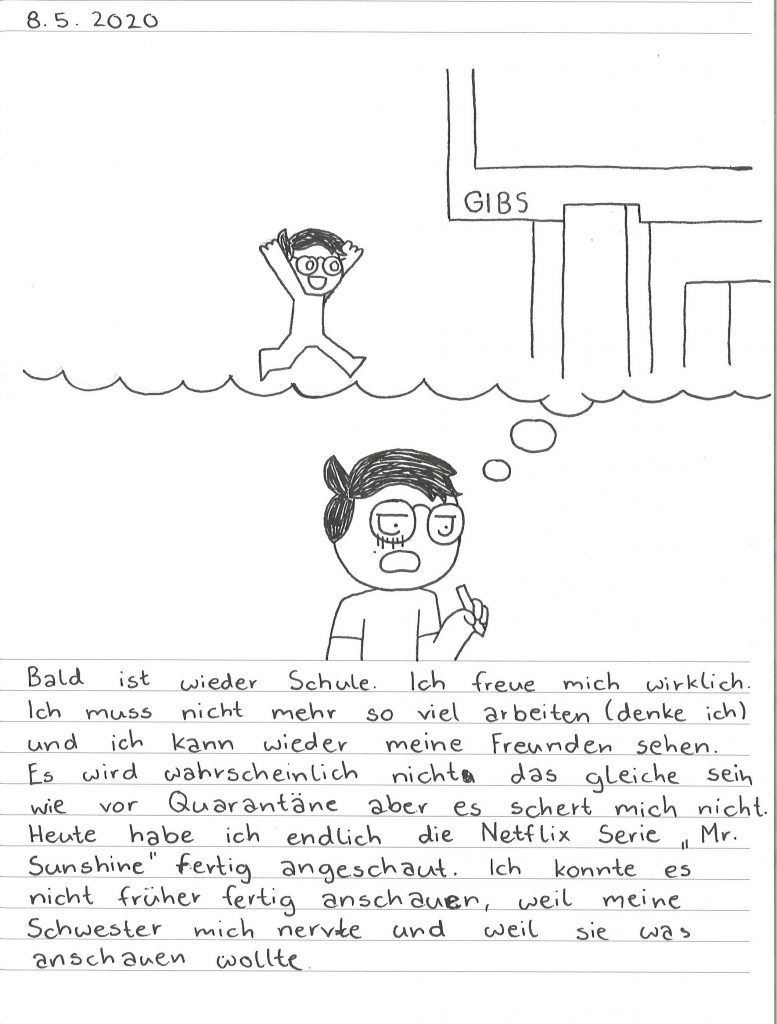 8.5.2020
GIBS
Bald ist wieder Schule. Ich freue mich wirklich.
Ich muss nicht mehr so viel arbeiten (denke ich)
und ich kann wieder meine Freunden sehen.
Es wird wahrscheinlich nicht das gleiche sein
wie vor Quarantäne aber es schert mich nicht.
Heute habe ich endlich die Netflix Serie „Mr.
Sunshine" fertig angeschaut. Ich konnte es
nicht früher fertig anschauen, weil meine
Schwester mich nervte und weil sie was
anschauen wollte.